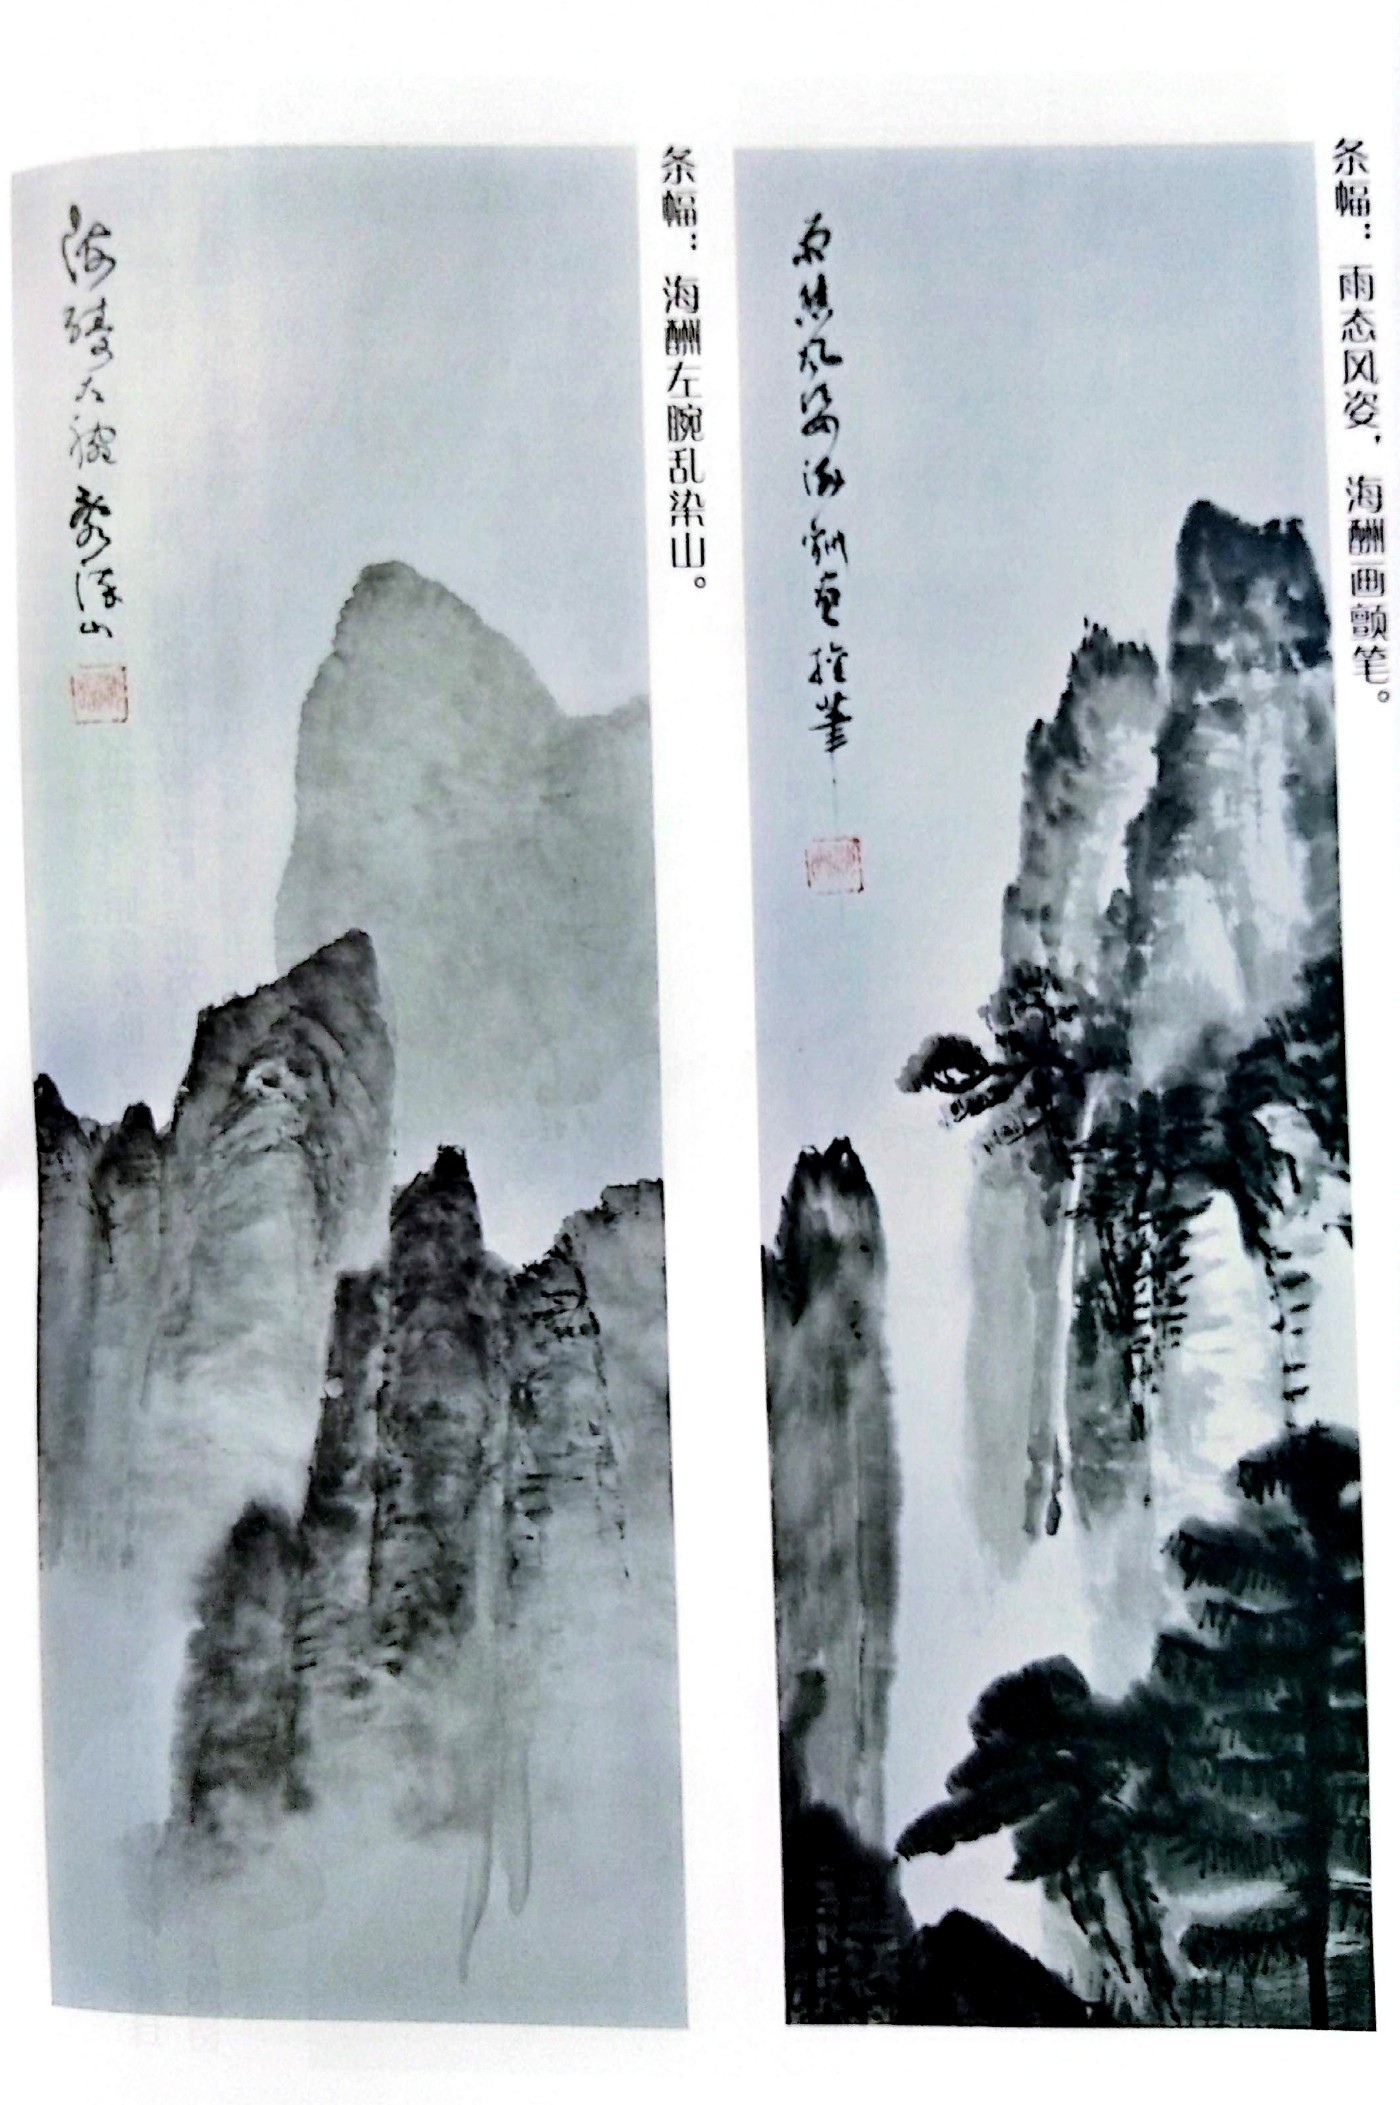 条幅：雨态风姿，海酬画颤笔。
雨態风姿海酬画
笔
条幅：海酬左腕乱染山。
海酬左腕乱染山